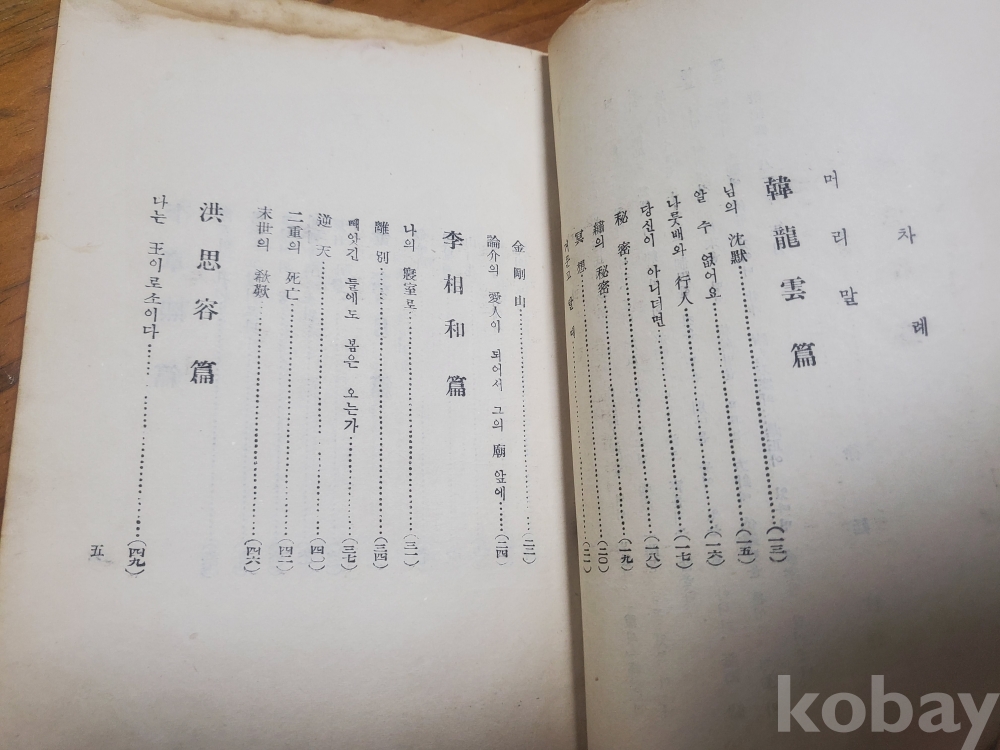 차례
머리말
韓龍雲篇
님의 沈默………(一三)
알 수 없어요………(一五)
나룻배와 行人………(一六)
당신이 아니더면………(一七)
秘密………(一八)
繡의 秘密………(一九)
冥想………(二〇)
거문고 탈 때………(二一)
金剛山………(二二)
論介의 愛人이 되어서 그의 廟 앞에………(二四)
李相和篇
나의 寢室로………(三一)
離別………(三四)
빼앗긴 들에도 봄은 오는가………(三七)
逆天………(四一)
二重의 死亡………(四二)
末世의 欷歎………(四六)
洪思容篇
나는 王이로소이다………(四九)
五
kobay